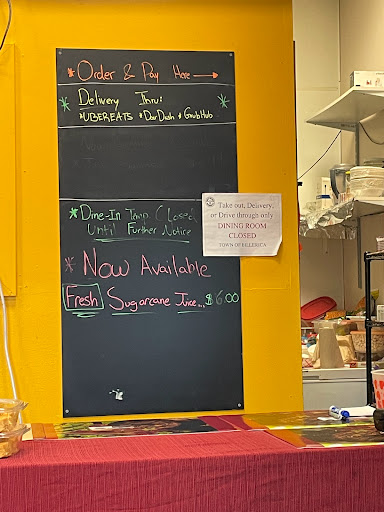 * Order & Pay Here →
* Delivery Thru: *
*UBEREATS *DoorDash * GrubHub
* Dine-In Temp Closed
Until Further Notice
Take out, Delivery,
or Drive through only
DINING ROOM
CLOSED
TOWN OF BILLERICA
* Now Available
Fresh Sugarcane Juice... $6.00